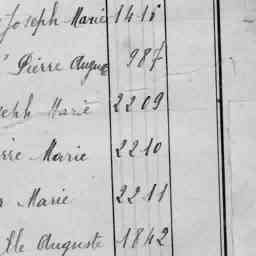 Joseph Marie 1418
Pierre Augus 987
seph Marie 2209
rre Marie 2210
Marie 2211
lle Auguste 1842